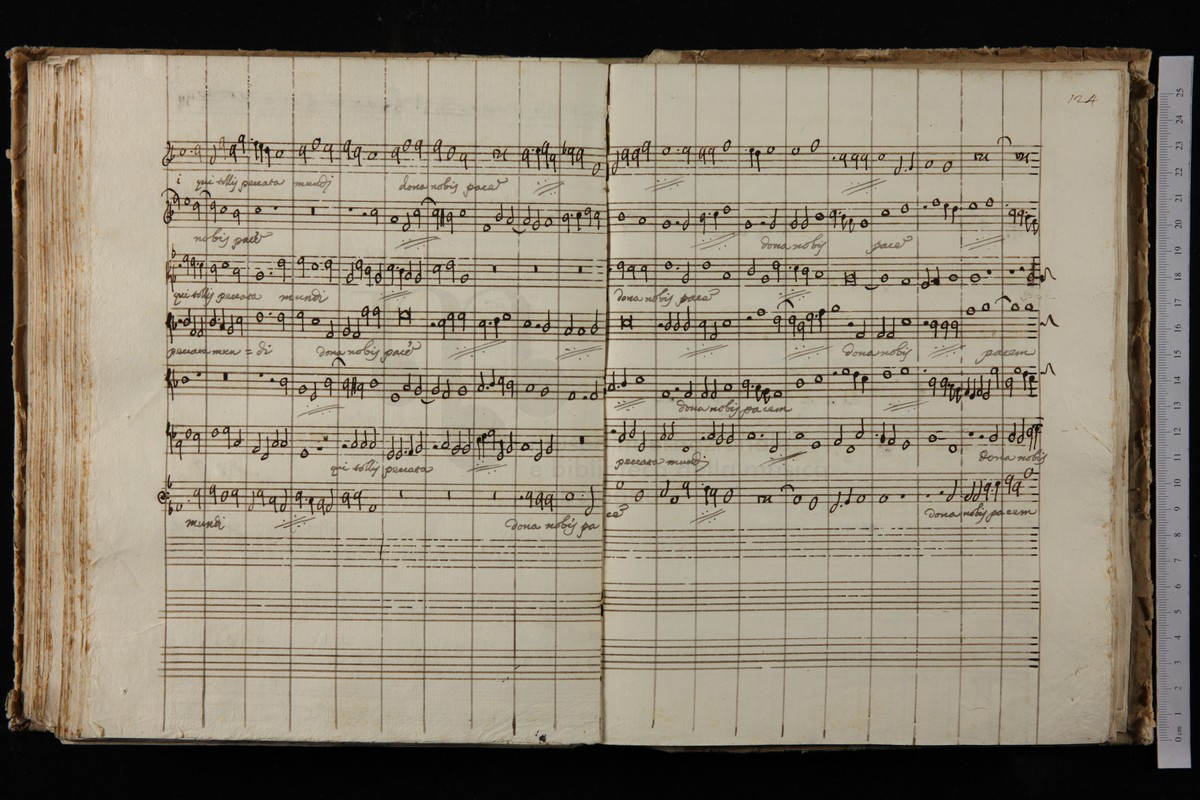 124
i qui tollis peccata mundi dona nobis pacē
nobis pacē dona nobis pacē
qui tollis peccata mundi dona nobis pacē
peccata mun = di dona nobis pacē dona nobis pacem
dona nobis pacem
qui tollis peccata peccata mundi dona nobis
mundi dona nobis pa cē dona nobis pacem
0 cm 1 2 3 4 5 6 7 8 9 10 11 12 13 14 15 16 17 18 19 20 21 22 23 24 25